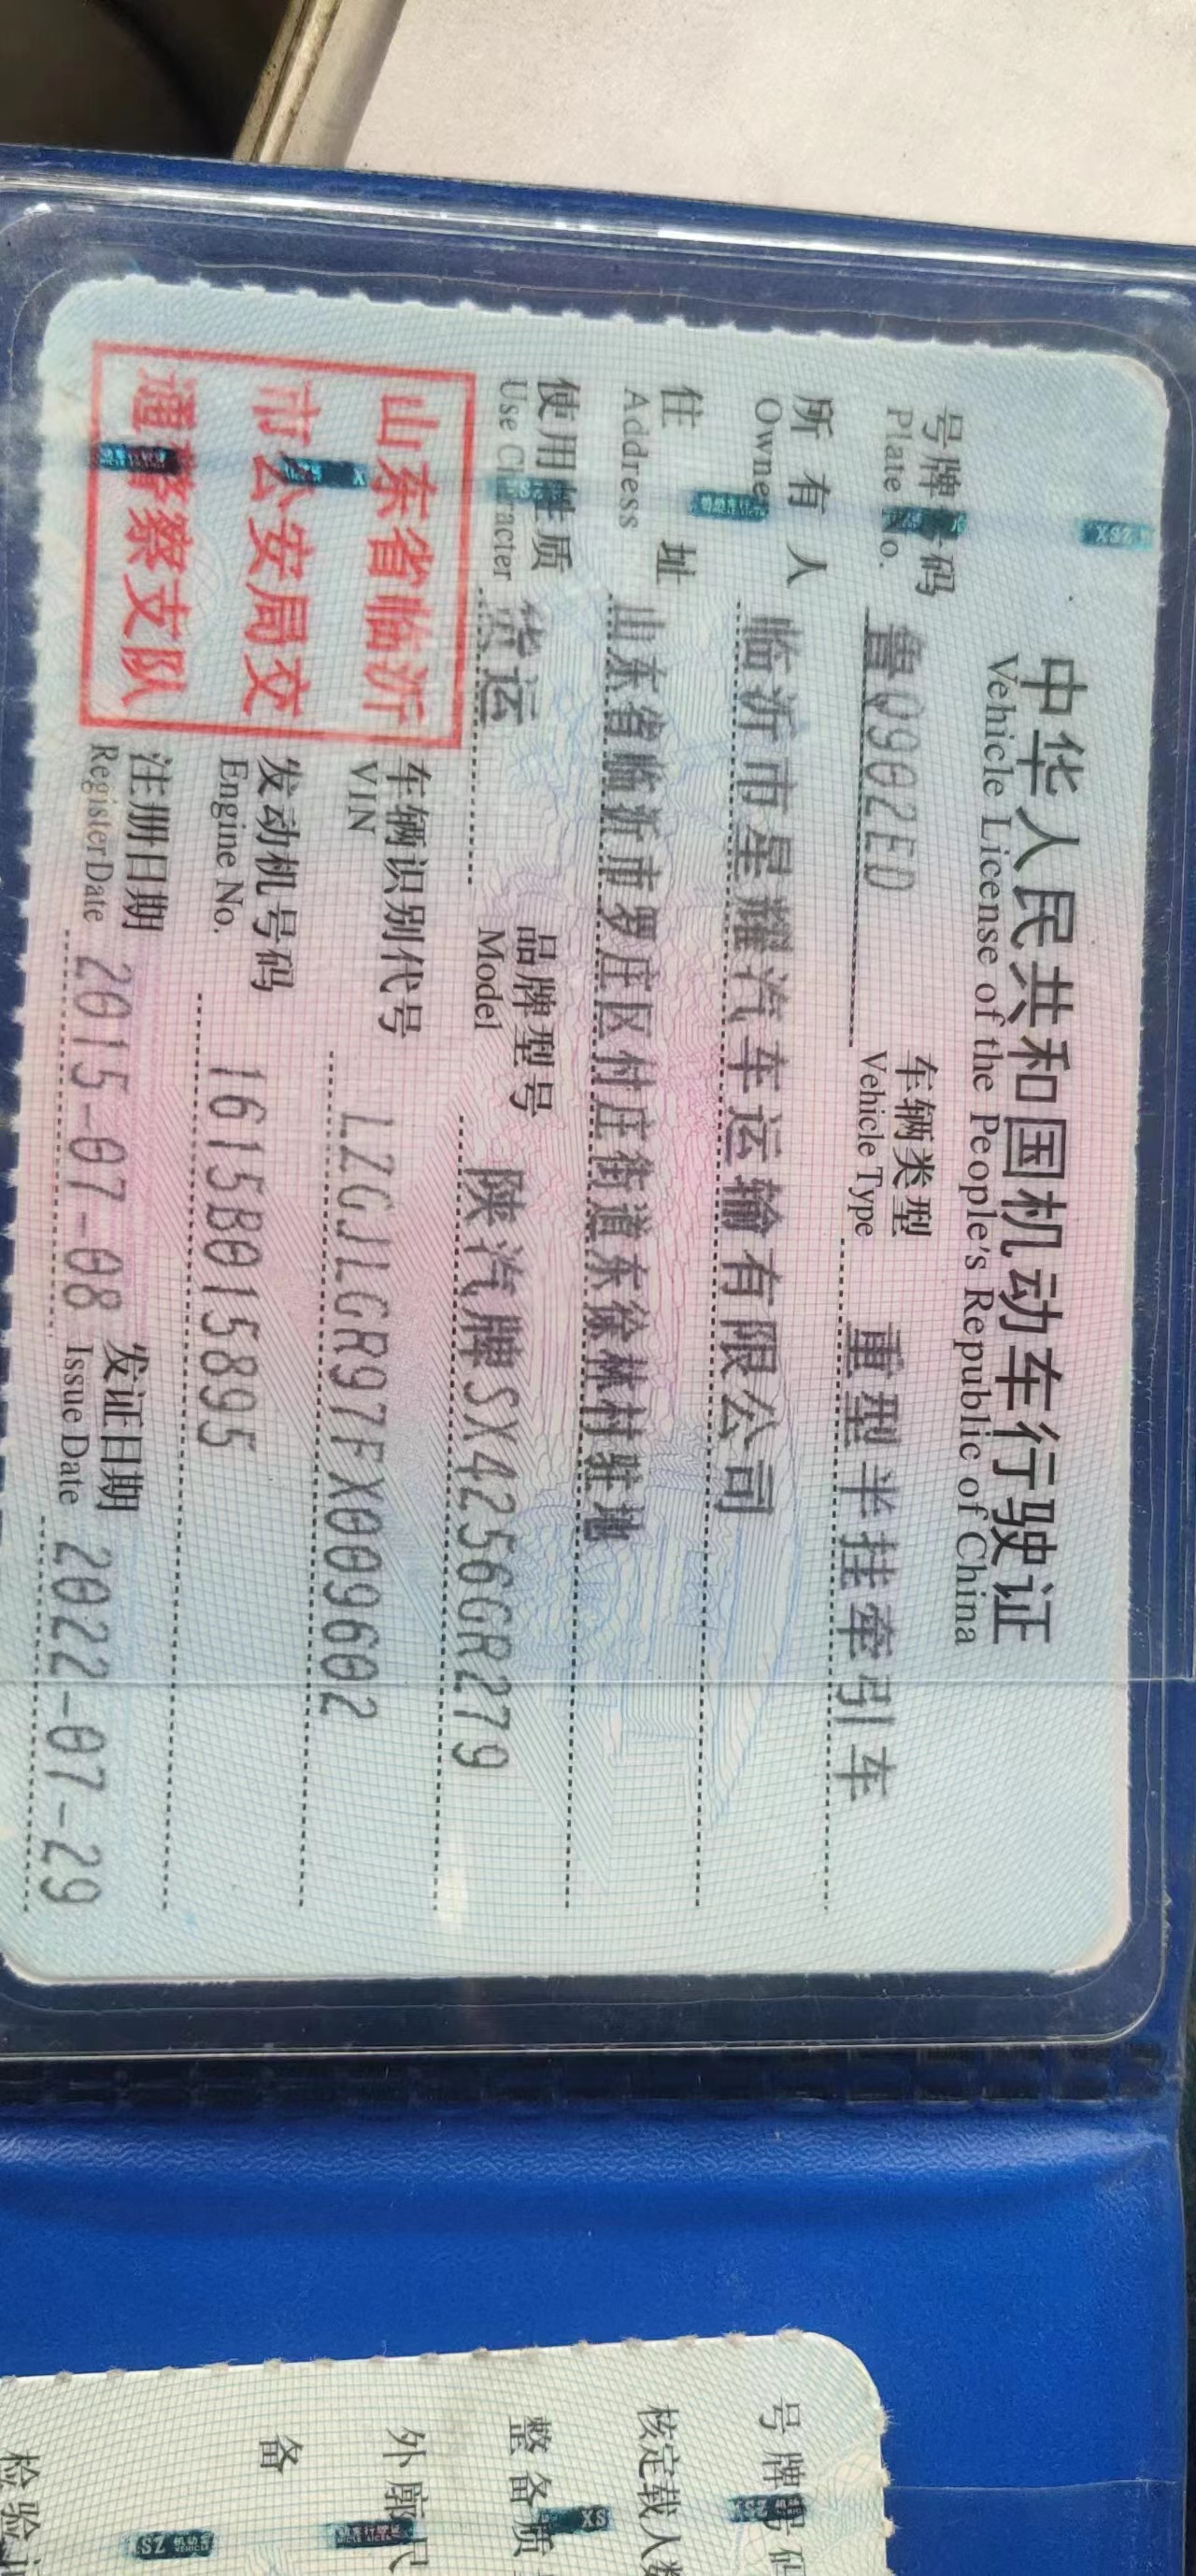 中华人民共和国机动车行驶证
Vehicle License of the People's Republic of China
号牌号码 鲁Q902ED 车辆类型 重型半挂牵引车
Plate No. Vehicle Type
所有人 临沂市星耀汽车运输有限公司
Owner
住址 山东省临沂市罗庄区付庄街道东徐林村驻地
Address
使用性质 货运 品牌型号 陕汽牌SX4256GR279
Use Character Model
山东省临沂
市公安局交
通警察支队
车辆识别代号 LZGJLGR97FX009602
VIN
发动机号码 1615B015895
Engine No.
注册日期 2015-07-08 发证日期 2022-07-29
Register Date Issue Date
号牌号码
核定载人数
整备质
外廓尺
备
检验